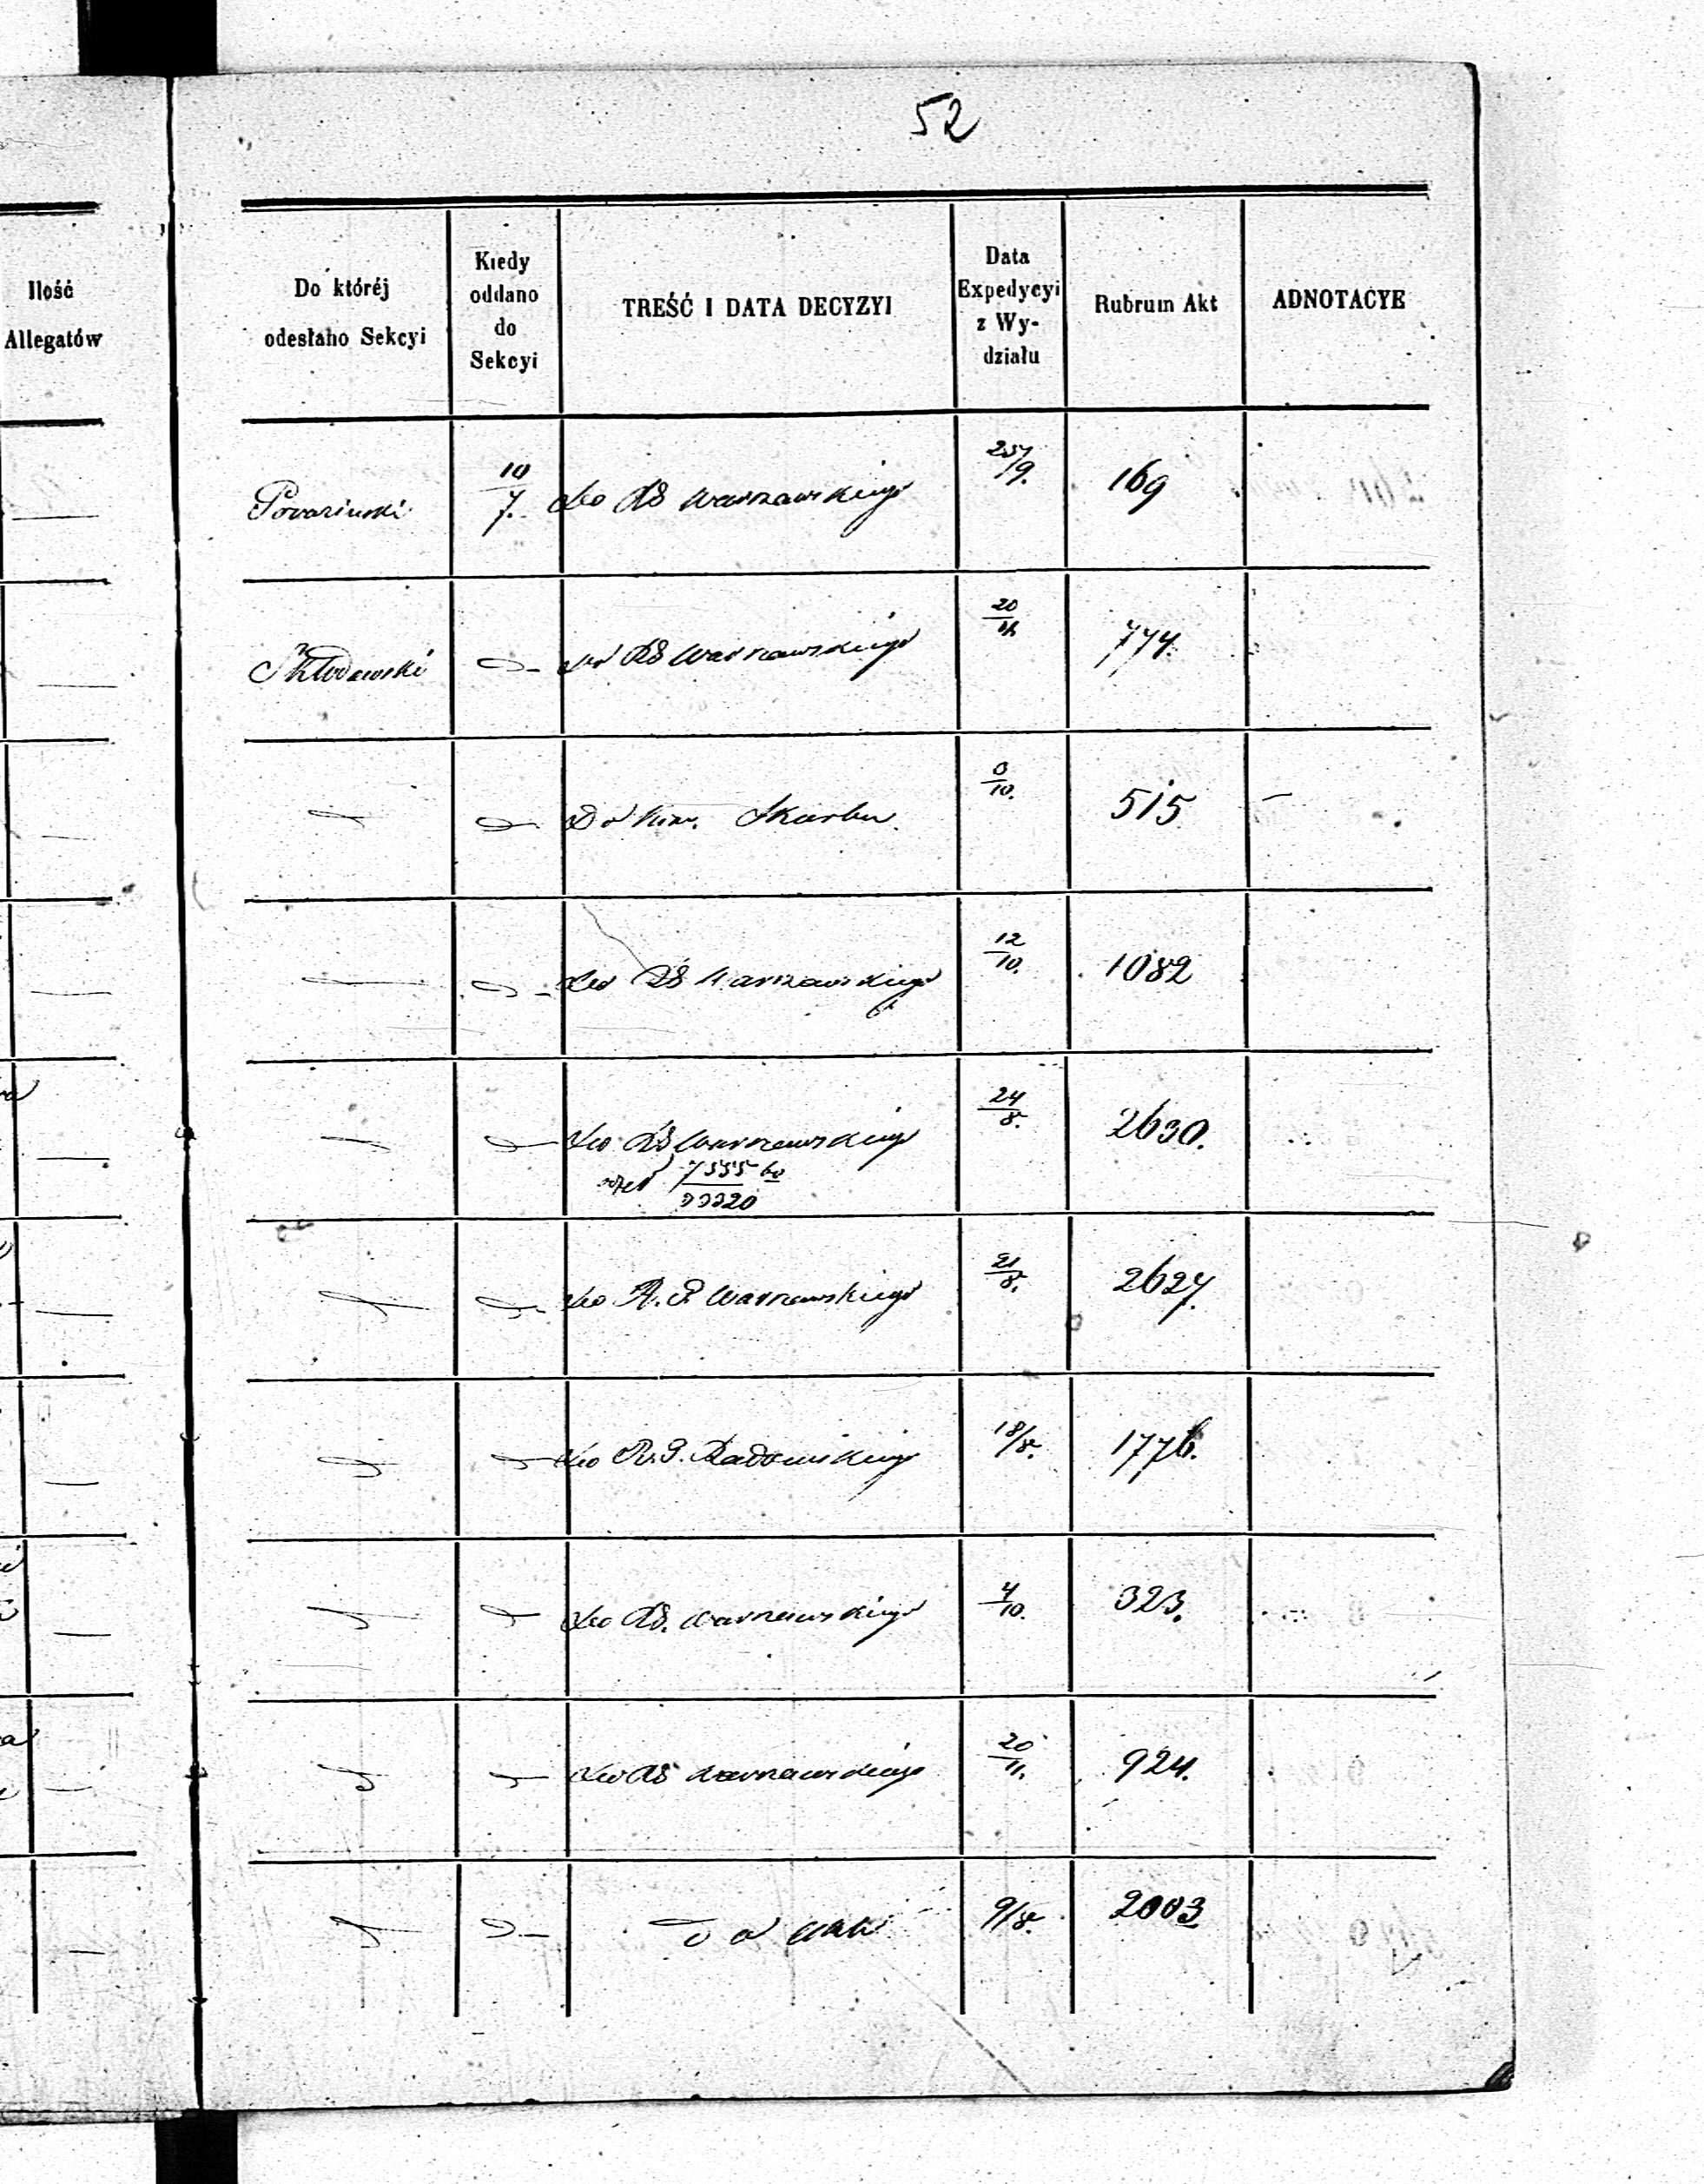 52
Ilość
Allegatów
Do któréj
odesłano Sekcyi
Kiedy
oddano
do
Sekcyi
TREŚĆ I DATA DECYZYI
Data
Expedycyi
z Wy-
działu
Rubrum Akt
ADNOTACYE
10/7. Do RG Warszawskiego 169
Do RG Warszawskiego 20 774.
Do Kom. Skarbu. 10. 515
Do RG Warszawskiego 12/10. 1082
Do RG Warszawskiego 24/8. 2630.
Do R. G. Warszawskiego 21/8. 2627.
Do R. G. Radomskiego 18/8. 1776.
Do RG. Warszawskiego 4/10. 323.
Do RG Warszawskiego 20/11. 924.
ad acta 9/8. 2003